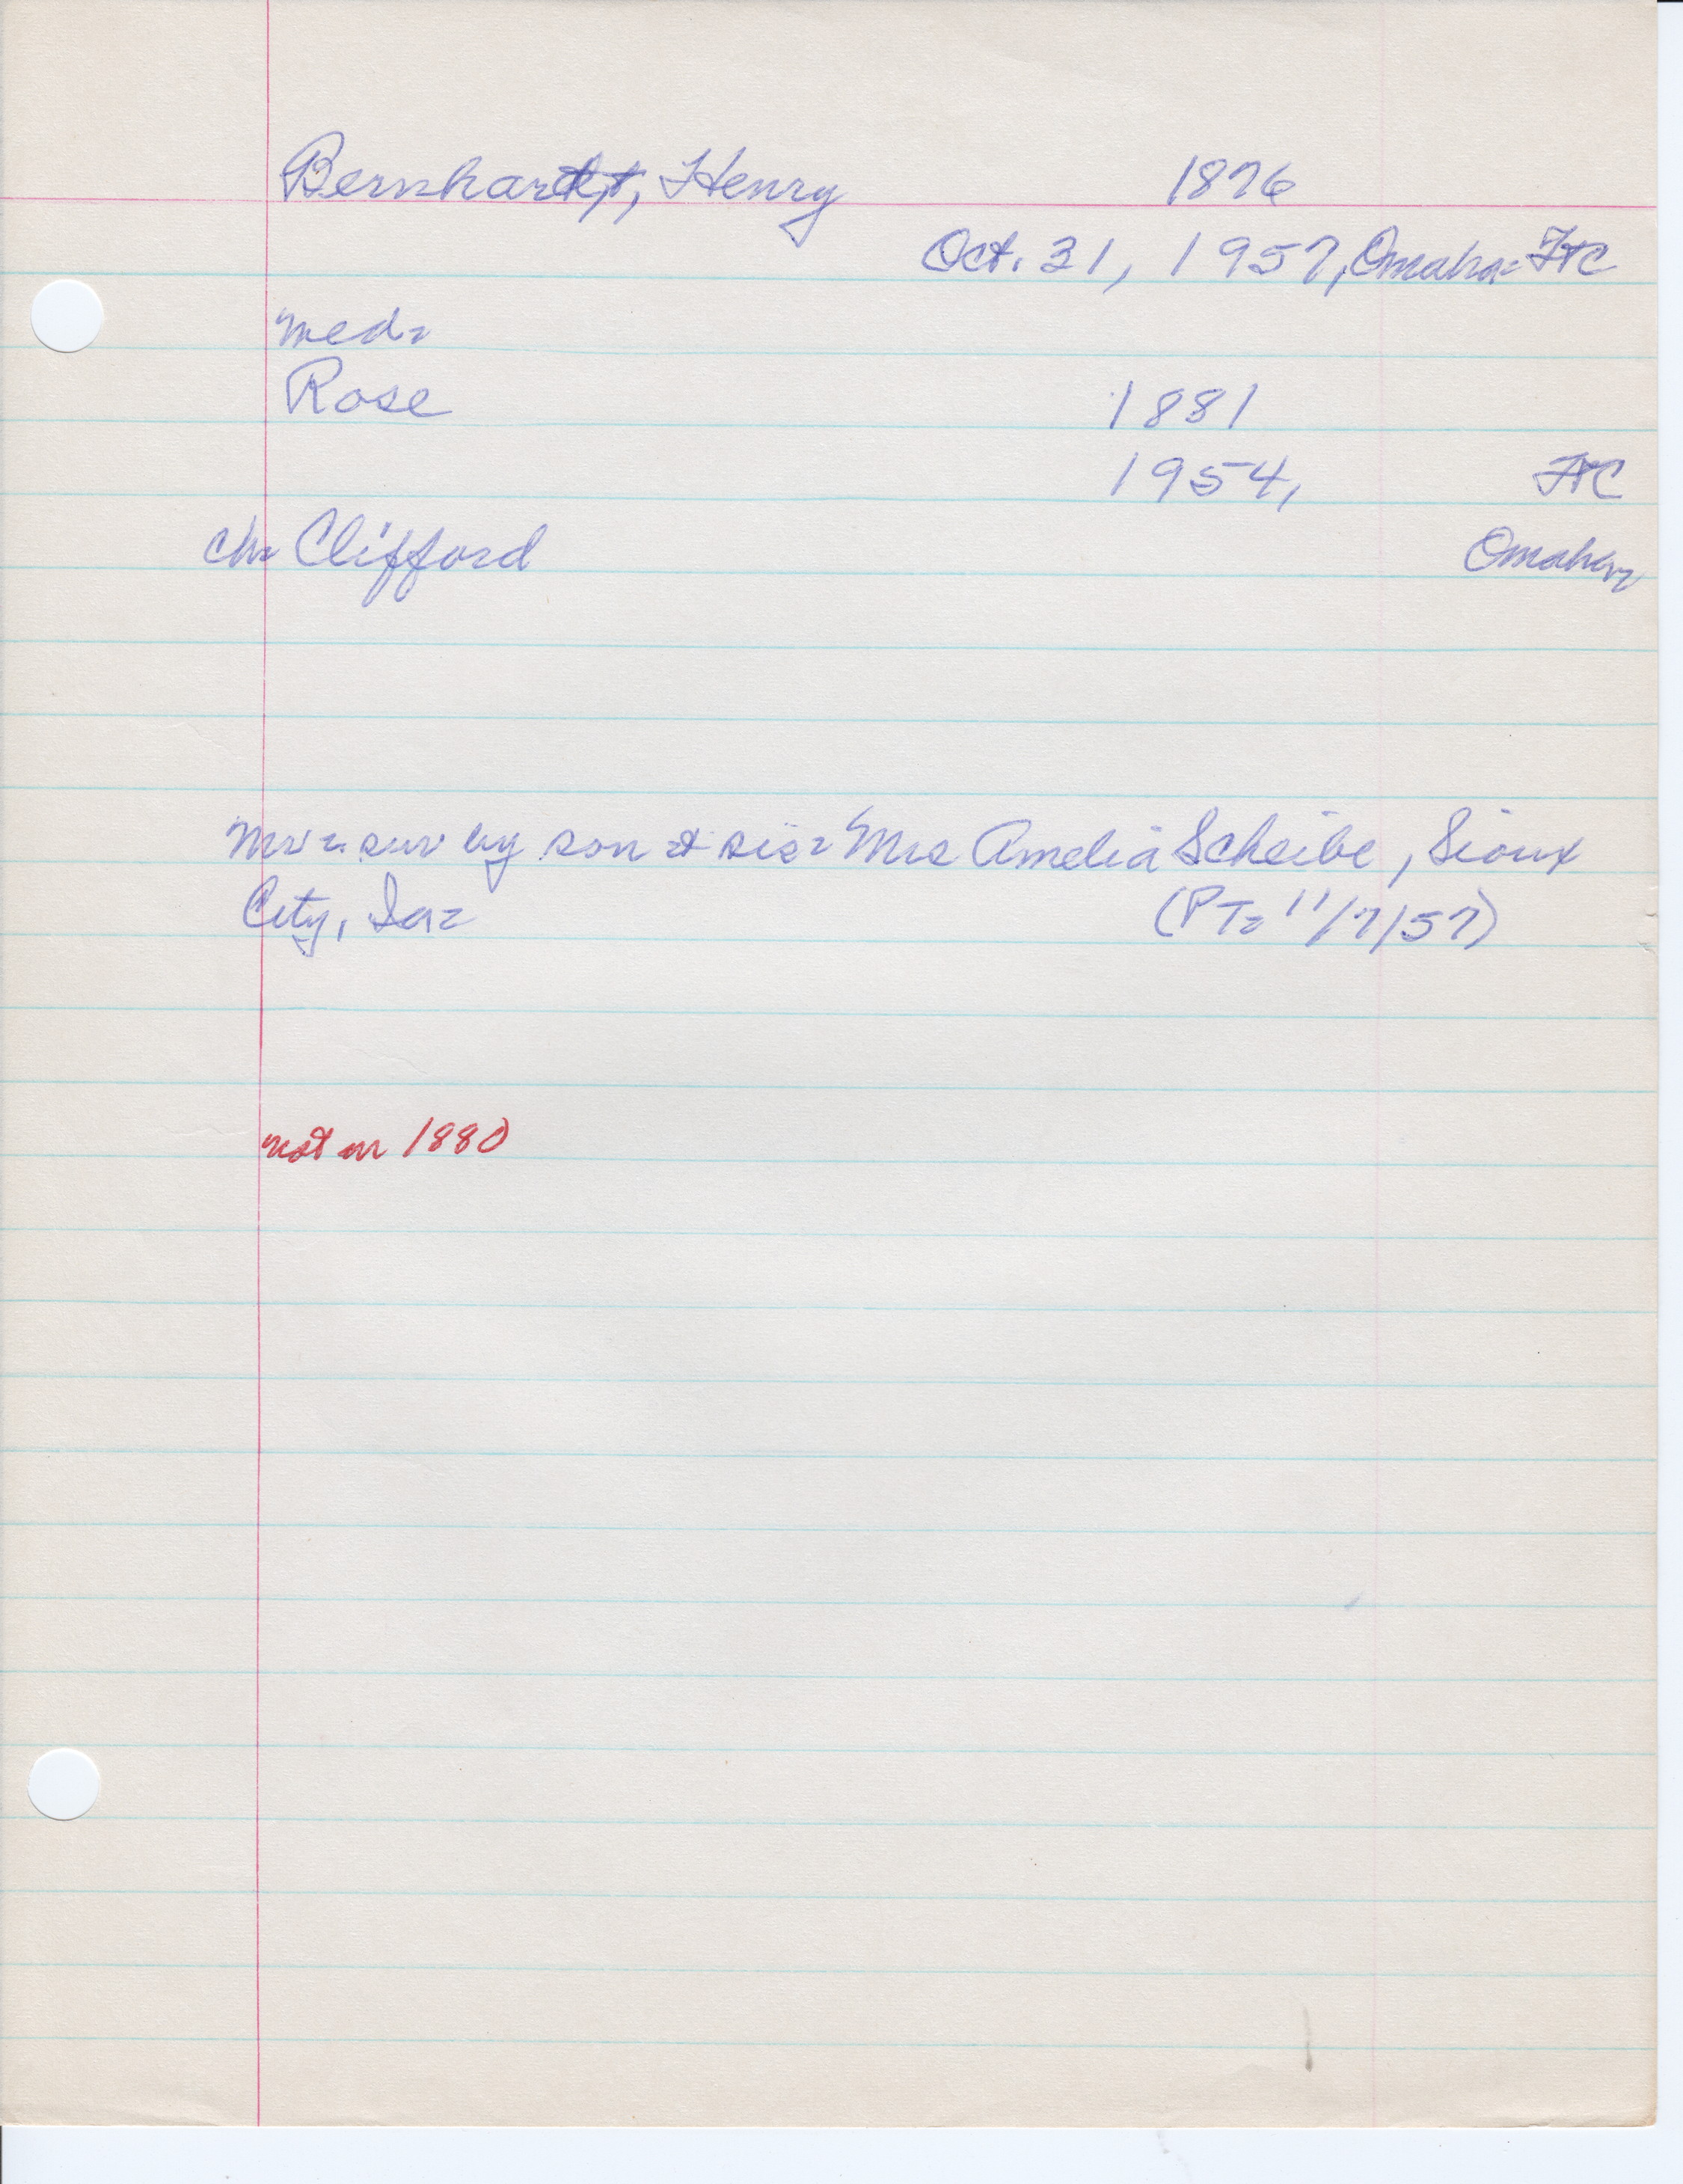 Bernhardt, Henry 1876
Oct. 31, 1957, Omaha- FTC
med-
Rose 1881
1954, FTC
ch- Clifford Omaha-
Mr- sur by son & sis- Mrs Amelia Scheibe, Sioux
City, Ia- (PT- 11/7/57)
not in 1880